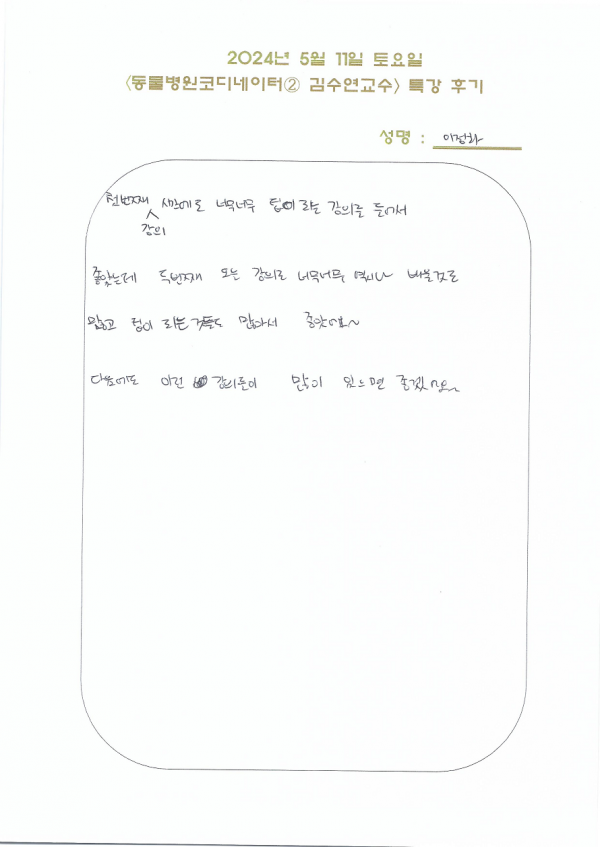 2024년 5월 11일 토요일
<동물병원코디네이터② 김수연교수> 특강 후기
성명 : 이정화
첫번째 강의 너무너무 팁이 되는 강의를 들어서
좋았는데 두번째 오는 강의로 너무너무 역시나 배울것도
많고 되는 것들도 많아서 좋았어요~
다음에도 이런 강의들이 많이 있으면 좋겠어요~